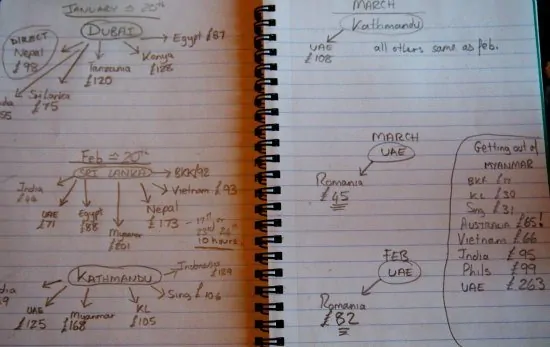 JANUARY ≏ 20th
DUBAI
DIRECT
Nepal
£98
Egypt £87
Kenya
£128
Tanzania
£120
Sri Lanka
£75
Feb ≏ 20th
SRI LANKA
BKK £92
India
Vietnam £93
UAE
£71
Egypt
£88
Myanmar
£201
Nepal
£173 - 17th or
10 hours.
KATHMANDU
Indonesia
£129
Sing £106
UAE
£125
Myanmar
£168
KL
£105
MARCH
Kathmandu
UAE
£108
all others same as feb.
MARCH
UAE
Romania
£45
FEB
UAE
Romania
£82
Getting out of
MYANMAR
BKK
KL £30
Sing £31
AUSTRALIA £65!
Vietnam £66
India £95
Phils £99
UAE £263